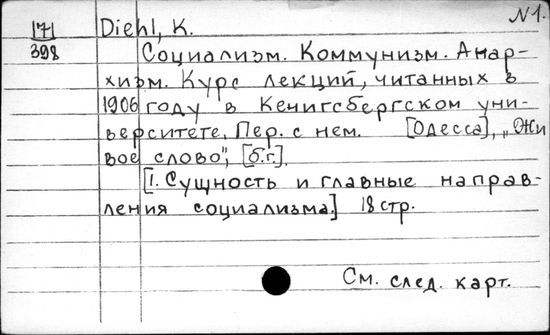 N1.
171 Diehl, K.
398 Социализм. Коммунизм. Анар-
хизм. Курс лекций, читанных в
1906 году в Кенигсбергском уни-
верситете. Пер. с нем. [Одесса], „Жи
вое слово", [б.г.].
[1. Сущность и главные направ-
ления социализма.] 18 стр.
См. след. карт.